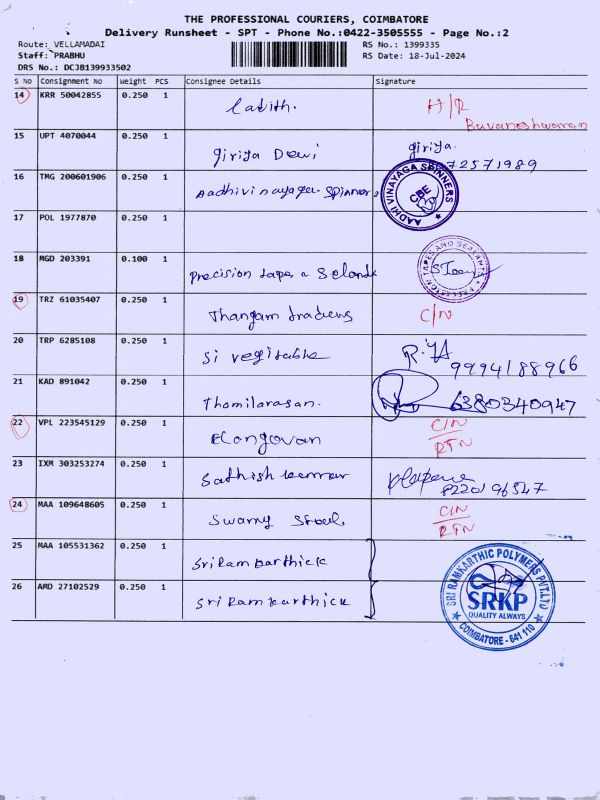 THE PROFESSIONAL COURIERS, COIMBATORE
Delivery Runsheet - SPT - Phone No.:0422-3505555 - Page No.:2
Route: VELLAMADAI RS No.: 1399335
Staff: PRABHU RS Date: 18-Jul-2024
DRS No.: DCJB139933502
S NO Consignment No Weight PCS Consignee Details Signature
14 KRR 50042855 0.250 1 Lalith. H/R
Buvaneshwaran
15 UPT 4070044 0.250 1 giriya.
giriya Dewi 72571989
16 TMG 200601906 0.250 1 Aadhivinayaga Spinners AADHI VINAYAGA SPINNERS CBE
17 POL 1977870 0.250 1
18 MGD 203391 0.100 1 PRECISION TAPES AND SEALANTS
precision tape n Selandt
19 TRZ 61035407 0.250 1 Thangam traders C/N
20 TRP 6285108 0.250 1 Si vegitable 9994188966
21 KAD 891042 0.250 1 Thamilarasan. 6380340947
22 VPL 223545129 0.250 1 Elangovan C/N
RTN
23 IXM 303253274 0.250 1 Sathish kumar 8220196547
24 MAA 109648605 0.250 1 Swamy Steel C/N
RTN
25 MAA 105531362 0.250 1 Sri Ram karthick
26 AMD 27102529 0.250 1 Sri Ram karthick
SRI RAMKARTHIC POLYMERS PVT.LTD
SRKP
QUALITY ALWAYS
COIMBATORE - 641 110